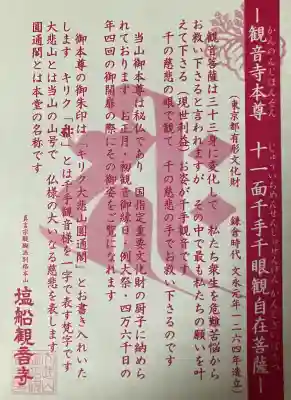 ー観音寺本尊 十一面千手千眼観自在菩薩ー
かんのんじほんぞん じゅういちめんせんじゅせんげんかんじざいぼさつ
(東京都有形文化財 鎌倉時代 文永元年一二六四年造立)
観音菩薩は三十三身に変化して、私たち衆生を危難苦悩から
お救い下さると言われますが、その中で最も私たちの願いを叶
えて下さる(現世利益)お姿が千手観音です。
千の慈悲の眼で観て、千の慈悲の手でお救い下さるのです
当山御本尊は秘仏であり、国指定重要文化財の厨子に納めら
れております。お正月・初観音御縁日・例大祭・四万六千日の
年四回の御開扉の際にその御姿をご覧になれます
御本尊の御朱印は「キリク大悲山圓通閣」とお書き入れいた
します キリク「 」とは千手観音様を一字で表す梵字です
大悲山とは当山の山号で 仏様の大いなる慈悲を表します
圓通閣とは本堂の名称です
真言宗醍醐派別格本山 塩船観音寺